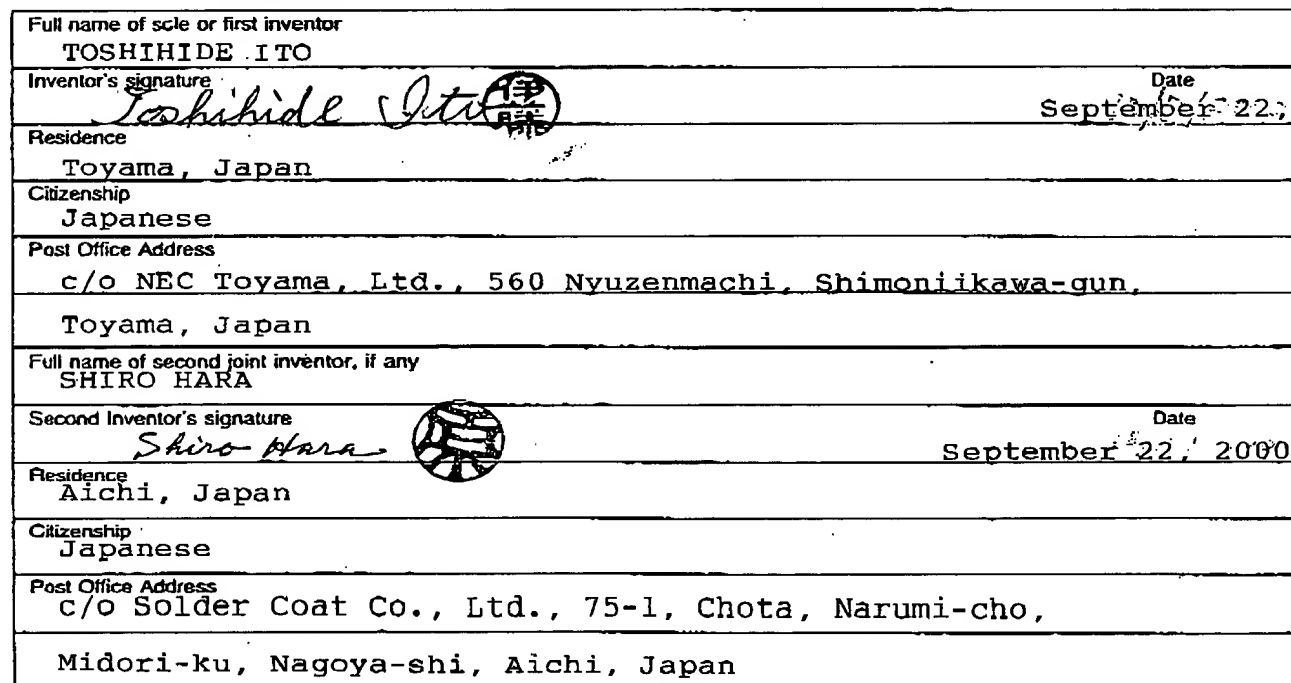 Full name of sole or first inventor
TOSHIHIDE ITO
Inventor's signature Date
Toshihide Ito 伊藤 September 22,
Residence
Toyama, Japan
Citizenship
Japanese
Post Office Address
c/o NEC Toyama, Ltd., 560 Nyuzenmachi, Shimoniikawa-gun,
Toyama, Japan
Full name of second joint inventor, if any
SHIRO HARA
Second Inventor's signature Date
Shiro Hara September 22, 2000
Residence
Aichi, Japan
Citizenship
Japanese
Post Office Address
c/o Solder Coat Co., Ltd., 75-1, Chota, Narumi-cho,
Midori-ku, Nagoya-shi, Aichi, Japan